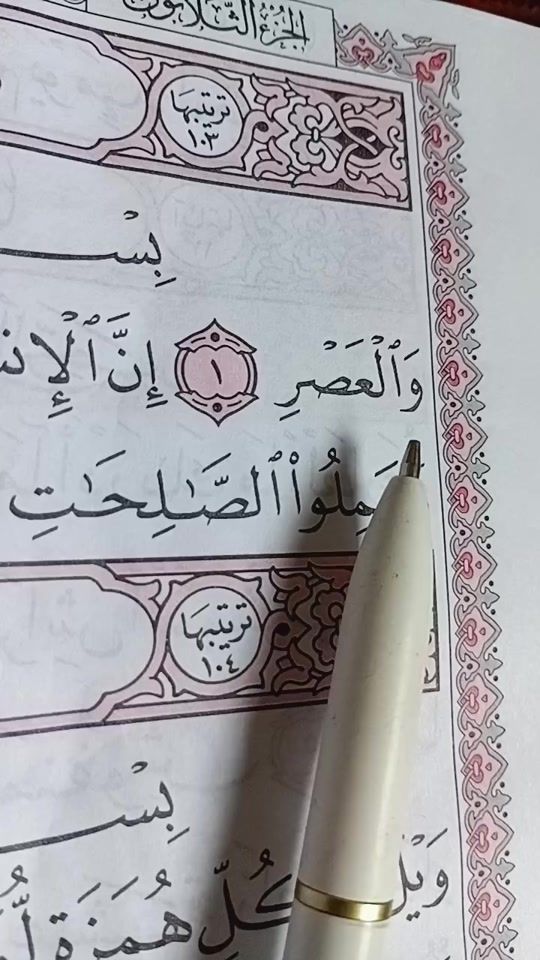 الجزء الثلاثون
ترتيبها
١٠٣
بِسْـ
وَٱلْعَصْرِ ١ إِنَّ ٱلْإِنـ
ـمِلُوا۟ ٱلصَّـٰلِحَـٰتِ
ترتيبها
١٠٤
بِسْـ
وَيْلٌ
كُلِّ هُمَزَةٍ